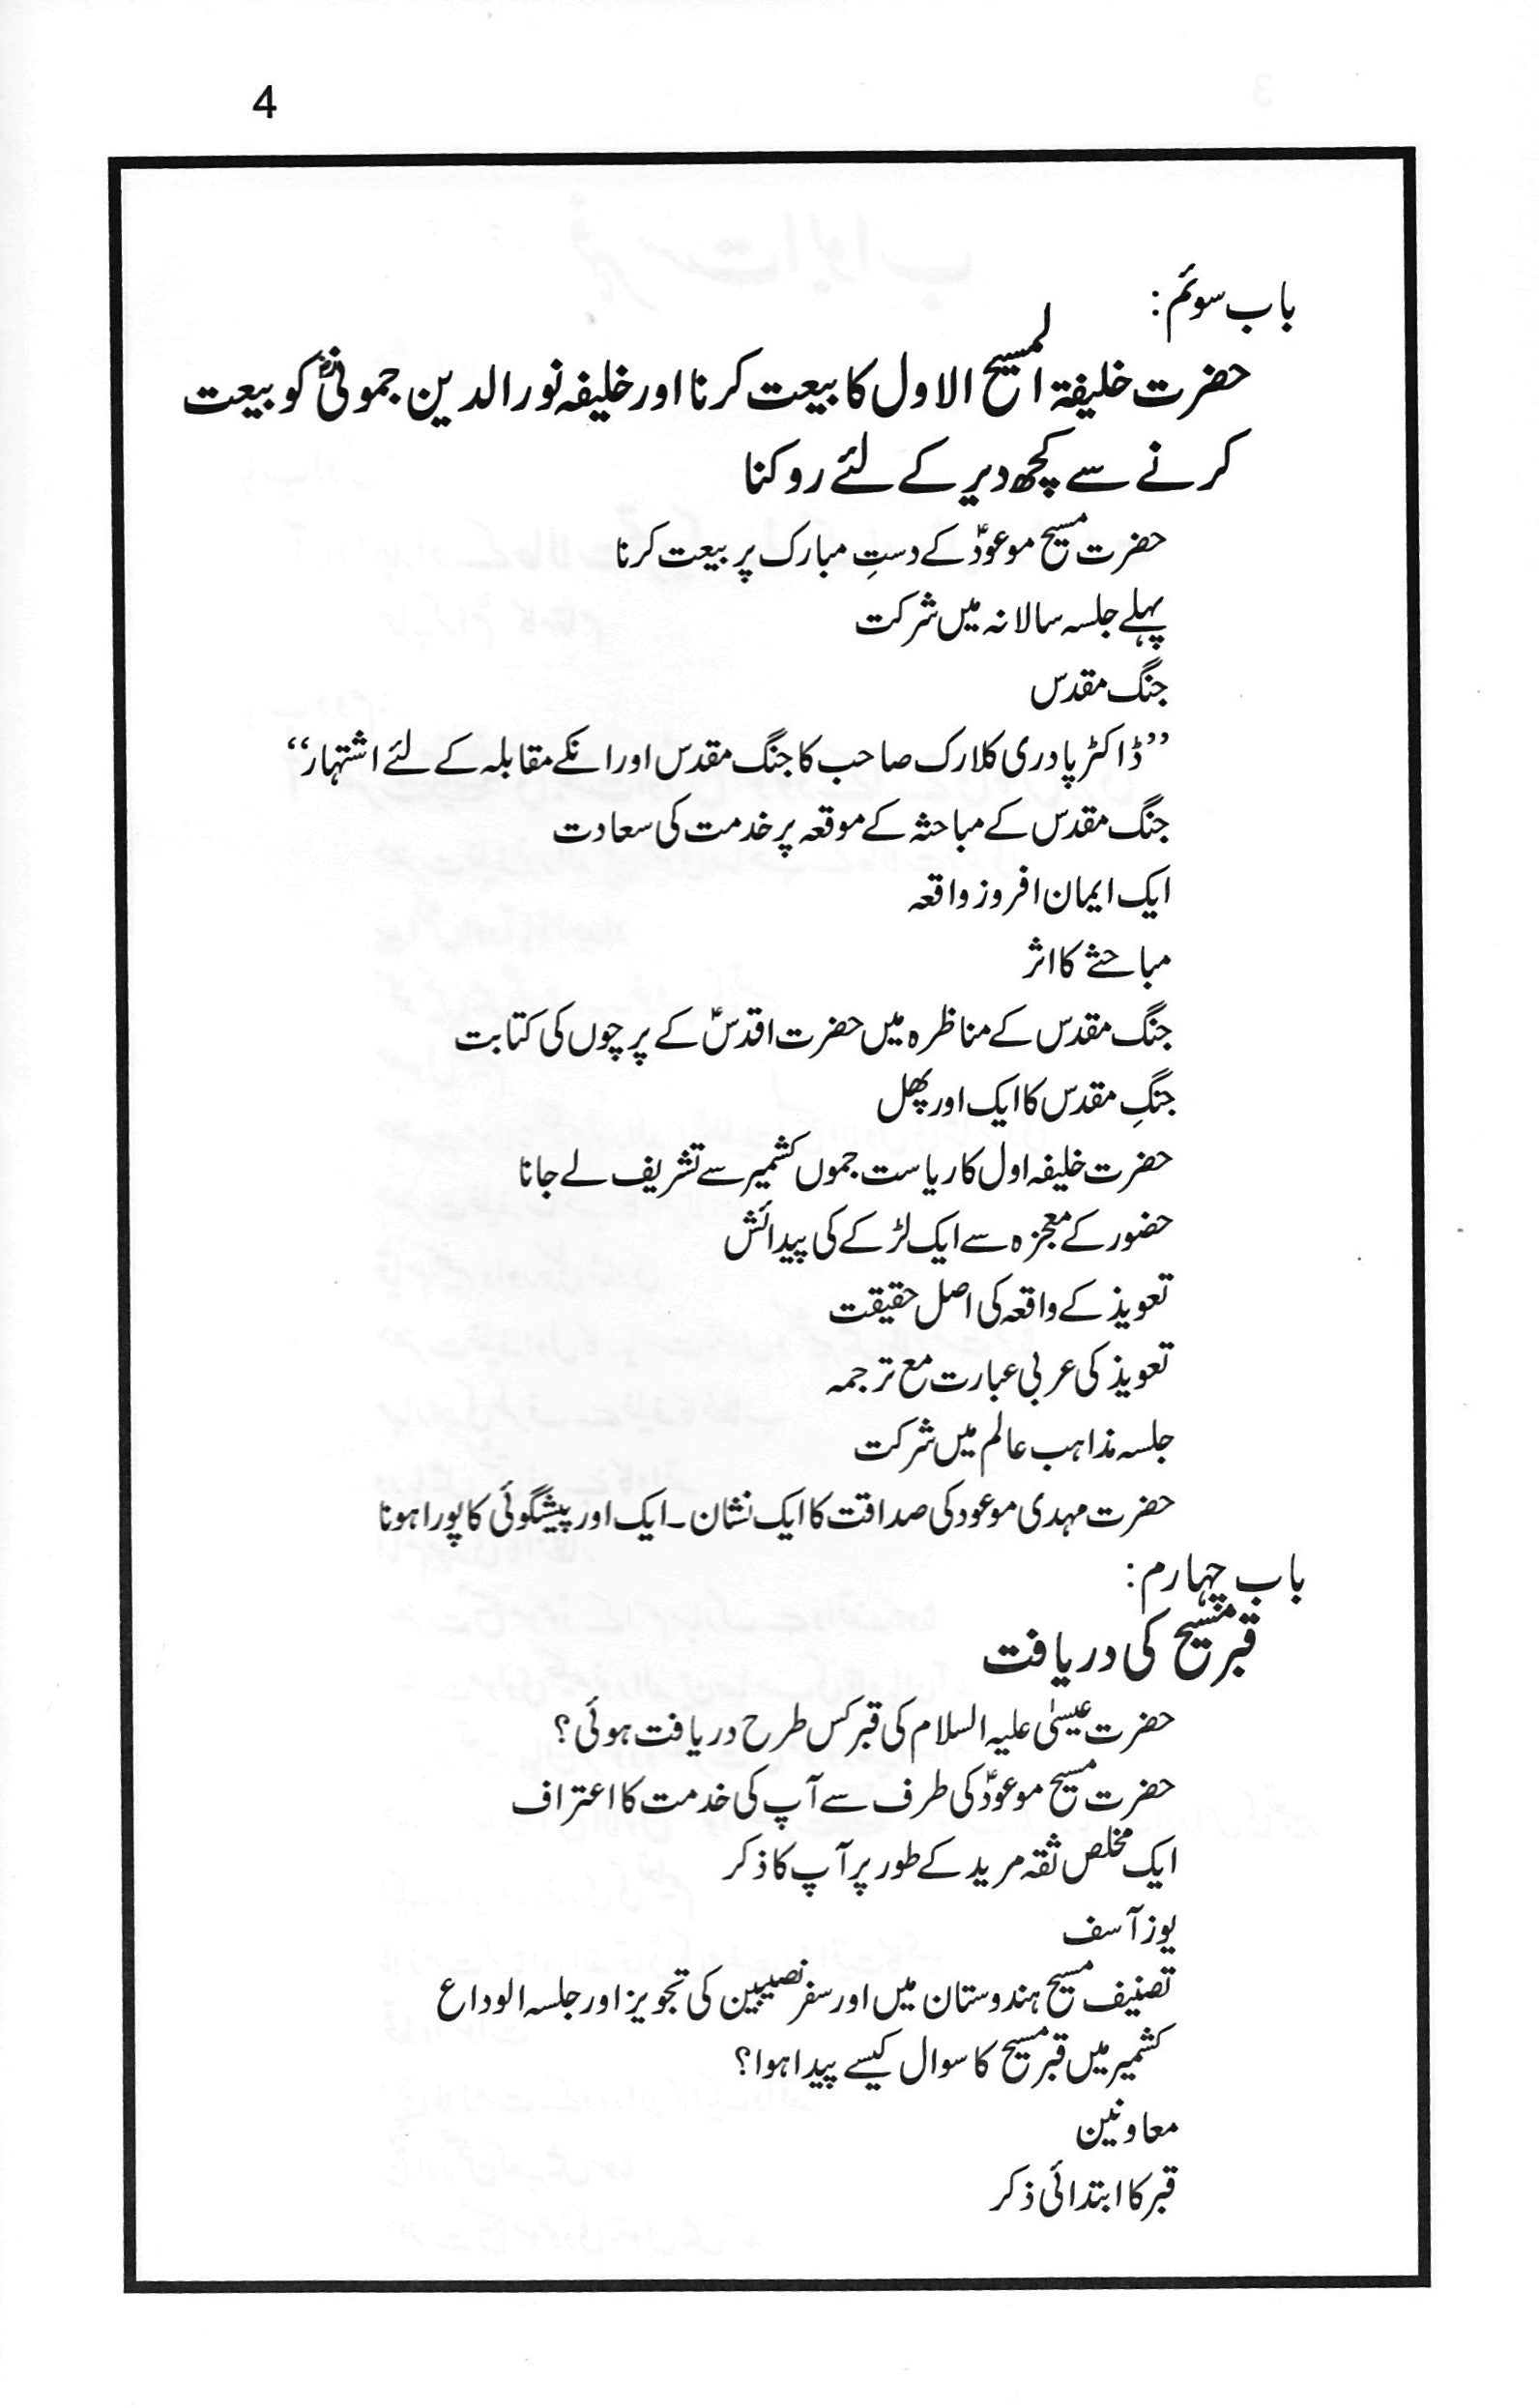 4
باب سوئم:
حضرت خلیفۃ المسیح الاول کا بیعت کرنا اور خلیفہ نورالدین جمونیؓ کو بیعت
کرنے سے کچھ دیر کے لئے روکنا
حضرت مسیح موعودؑ کے دستِ مبارک پر بیعت کرنا
پہلے جلسہ سالانہ میں شرکت
جنگ مقدس
”ڈاکٹر پادری کلارک صاحب کا جنگ مقدس اور انکے مقابلہ کے لئے اشتہار“
جنگ مقدس کے مباحثہ کے موقعہ پر خدمت کی سعادت
ایک ایمان افروز واقعہ
مباحثے کا اثر
جنگ مقدس کے مناظرہ میں حضرت اقدسؑ کے پرچوں کی کتابت
جنگِ مقدس کا ایک اور پھل
حضرت خلیفہ اول کا ریاست جموں کشمیر سے تشریف لے جانا
حضور کے معجزہ سے ایک لڑکے کی پیدائش
تعویذ کے واقعہ کی اصل حقیقت
تعویذ کی عربی عبارت مع ترجمہ
جلسہ مذاہب عالم میں شرکت
حضرت مہدی موعود کی صداقت کا ایک نشان۔ ایک اور پیشگوئی کا پورا ہونا
باب چہارم:
قبر مسیح کی دریافت
حضرت عیسیٰ علیہ السلام کی قبر کس طرح دریافت ہوئی؟
حضرت مسیح موعودؑ کی طرف سے آپ کی خدمت کا اعتراف
ایک مخلص ثقہ مرید کے طور پر آپ کا ذکر
یوز آسف
تصنیف مسیح ہندوستان میں اور سفر نصیبین کی تجویز اور جلسہ الوداع
کشمیر میں قبر مسیح کا سوال کیسے پیدا ہوا؟
معاونین
قبر کا ابتدائی ذکر